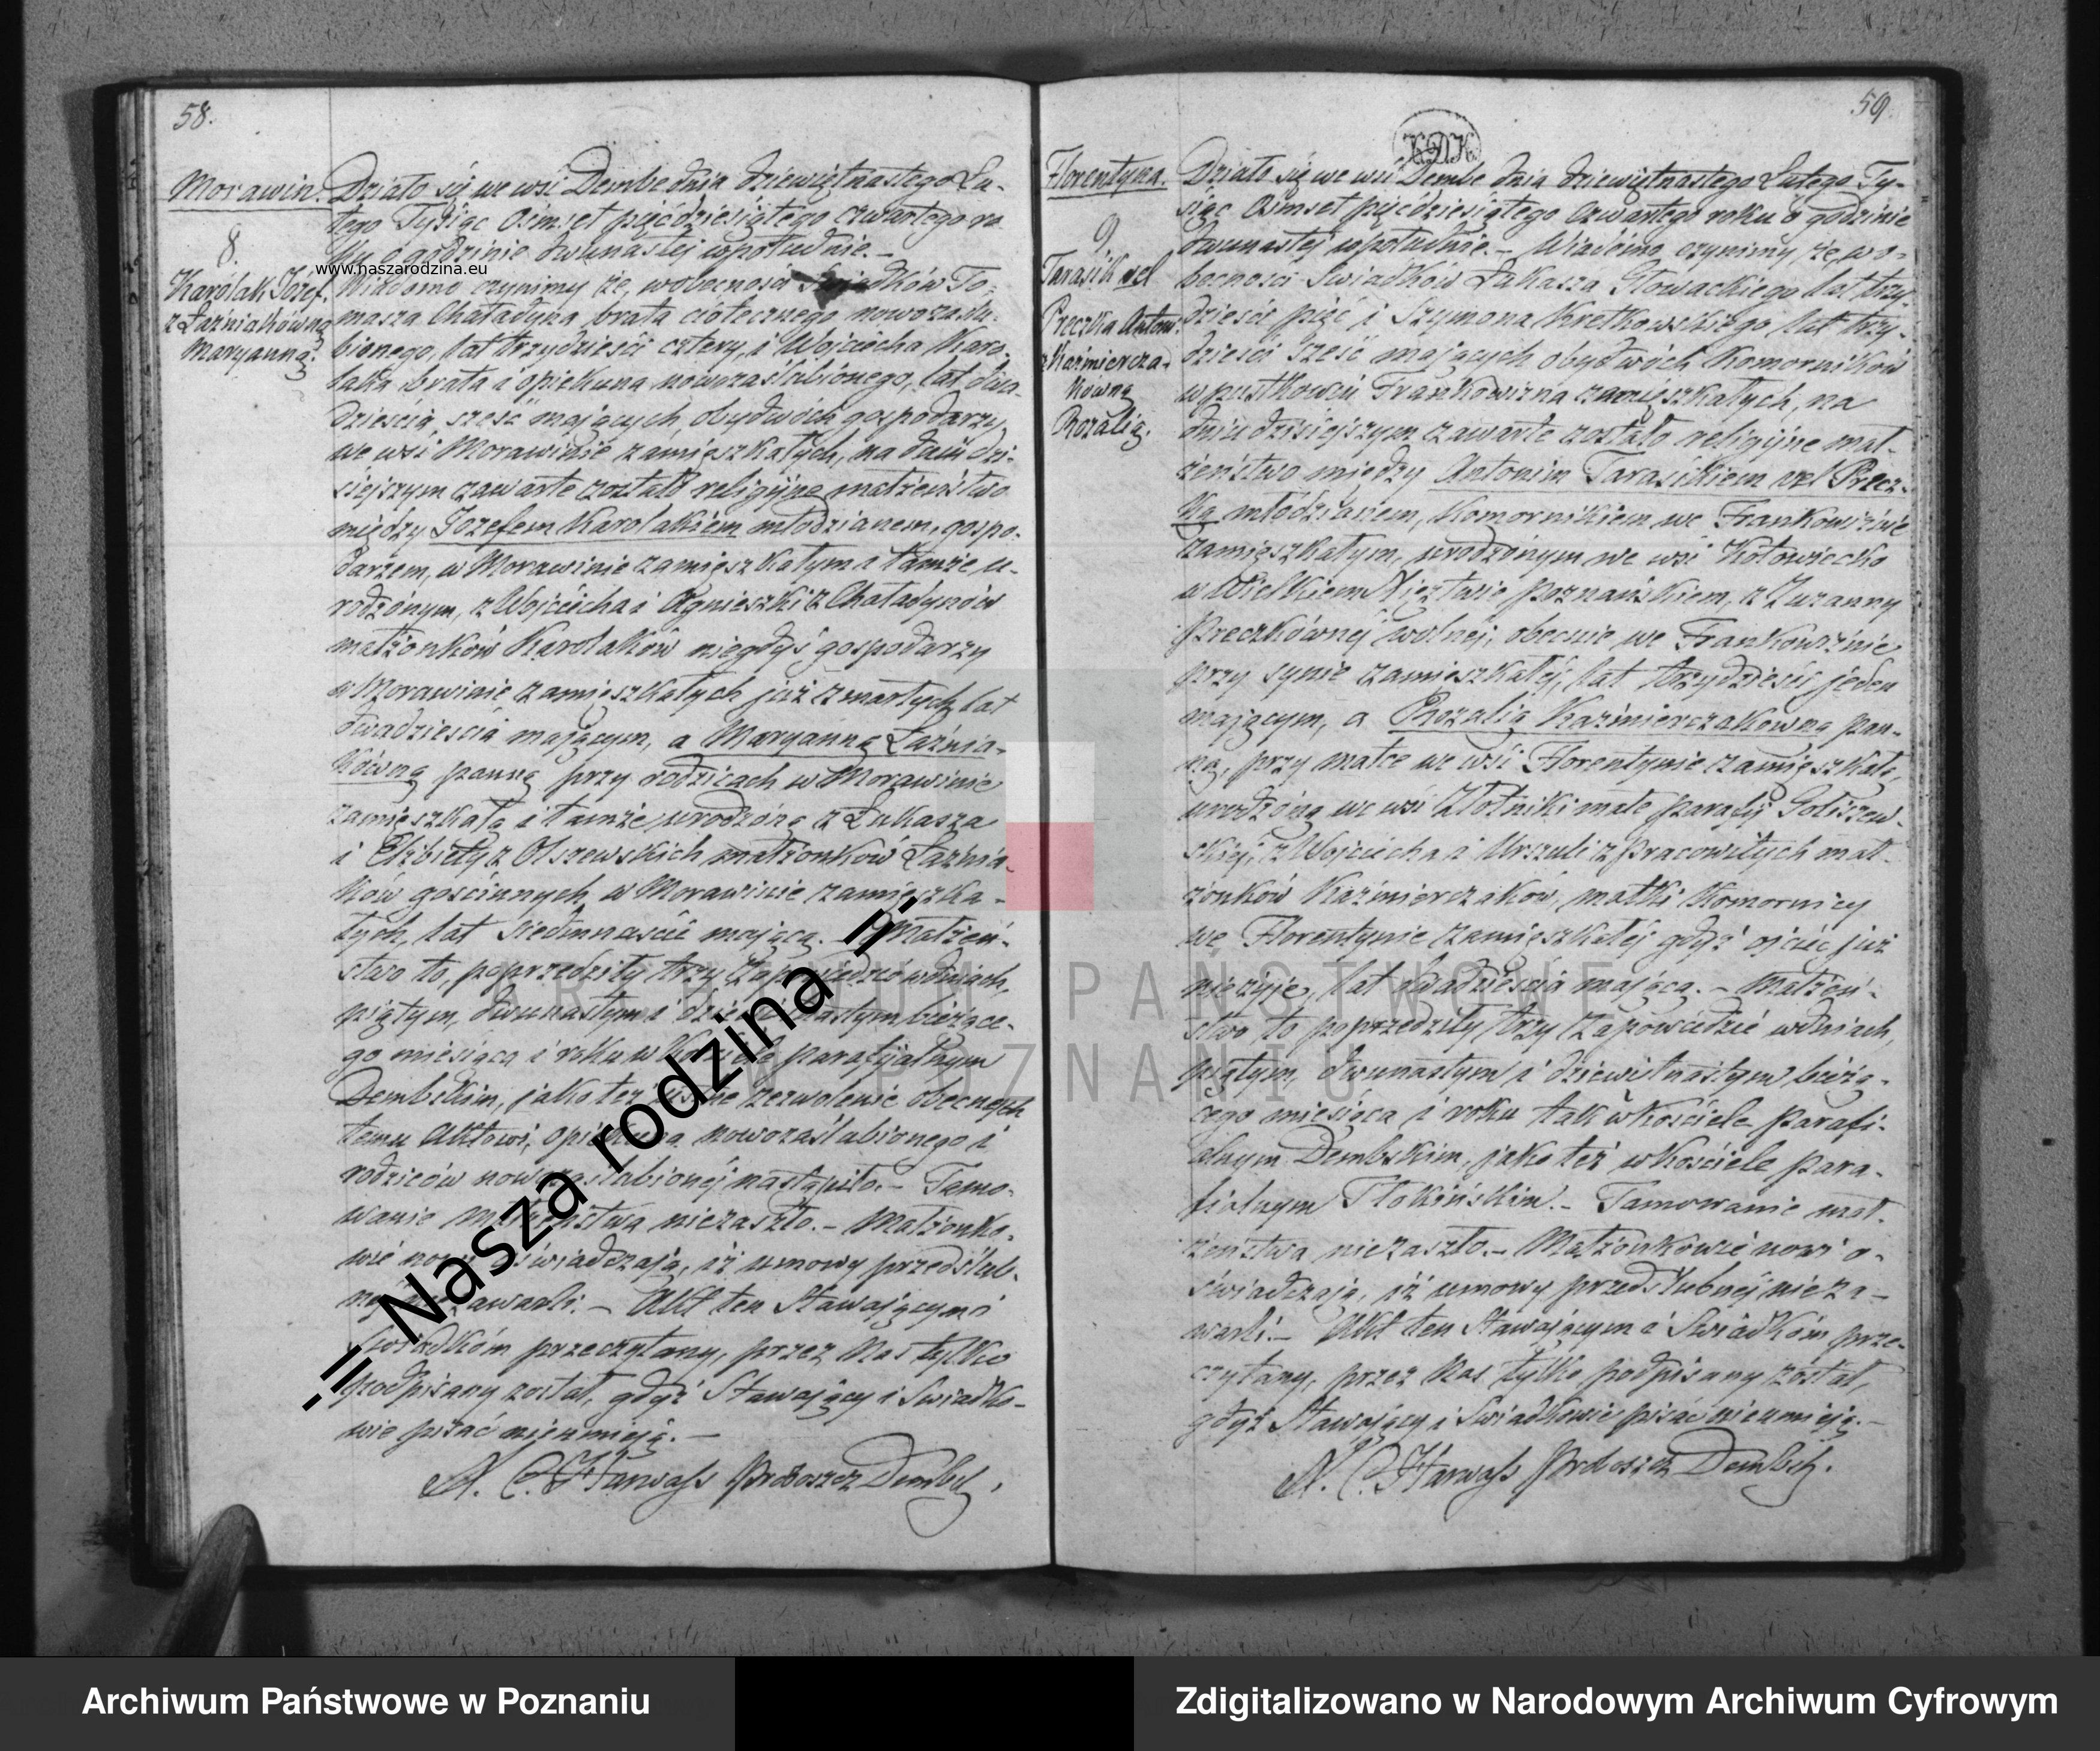 58.
Morawin.
8.
Karolak Józef
z Łaźniakówną
Maryanną.
Działo się we wsi Dembe dnia dziewiętnastego Lu-
tego Tysiąc Ośmset pięćdziesiątego czwartego ro
ku o godzinie dwunastej w południe. –
www.naszarodzina.eu
Wiadomo czynimy że, w obecności Świadków To-
masza Chaładyna brata ciotecznego nowozaślu-
bionego, lat trzydzieści cztery, i Wojciecha Karo-
laka brata i opiekuna nowozaślubionego, lat dwa-
dzieścia sześć mających, obydwóch gospodarzy
we wsi Morawinie zamięszkałych, na dniu dzi-
siejszym zawarte zostało religijne małżeństwo
między Józefem Karolakiem młodzianem, gospo-
darzem, w Morawinie zamięszkałym i tamże u-
rodzonym, z Wojciecha i Agnieszki z Chaładynów
małżonków Karolaków niegdyś gospodarzy
w Morawinie zamięszkałych już zmarłych, lat
dwadzieścia mającym, a Maryanną Łaźnia-
kówną panną przy rodzicach w Morawinie
zamięszkałą i tamże urodzoną z Łukasza
i Elżbiety z Olszewskich małżonków Łaźnia-
ków gościnnych w Morawinie zamięszka-
łych, lat siedmnaście mającą. – Małżeń-
stwo to, poprzedziły trzy zapowiedzie w dniach,
piątym, dwunastym i dziewiętnastym bieżące-
go miesiąca i roku w Kościele parafijalnym
Dembskim, jako też ustne zezwolenie obecnych
temu Aktowi, opiekuna nowozaślubionego i
rodziców nowozaślubionej nastąpiło. – Tamo-
wanie małżeństwa niezaszło. – Małżonko-
wie nowi oświadczają, iż umowy przedślub-
nej niezawarli. – Akt ten Stawającym i
Świadkóm przeczytany, przez Nas tylko
podpisany został, gdyż Stawający i Świadko-
wie pisać nieumieją. –
Proboszcz
59
KDK
Florentyna.
9.
Tarasik vel
Preczka Antoni
z Kaźmiercza-
kówną
Rozalią.
Działo się we wsi Dembe dnia dziewiętnastego Lutego Ty-
siąc Ośmset pięćdziesiątego czwartego roku o godzinie
dwunastej w południe. – Wiadomo czynimy, że, w o-
becności Świadków Łukasza Głowackiego lat trzy-
dzieści pięć i Szymona Kretkowskiego, lat trzy-
dzieści sześć mających obydwóch Komorników
w pustkowiu Frankowizna zamięszkałych, na
dniu dzisiejszym zawarte zostało religijne mał-
żeństwo między Antonim Tarasikiem vel Precz-
ka młodzianem, Komornikiem we Frankowiznie
zamięszkałym, urodzonym we wsi Kotowiecko
w Wielkiem Xięztwie Poznańskiem, z Zuzanny
Preczkównej wolnej, obecnie we Frankowiznie
przy synie zamieszkałej, lat trzydzieści jeden
mającym, a Rozalią Kaźmierczakówną pan-
ną, przy matce we wsi Florentynie zamięszkałą,
urodzoną we wsi Złotniki małe parafij Goliszew-
skiej, z Wojciecha i Urszuli z pracowitych mał-
żonków Kaźmierczaków, matki Komornicy
we Florentynie zamięszkałej gdyż ojciec już
nieżyje, lat dwadzieścia mającą. – Małżeń-
stwo to poprzedziły trzy Zapowiedzie w dniach,
piątym, dwunastym i dziewiętnastym bieżą-
cego miesiąca i roku tak w kościele parafi-
alnym Dembskim, jako też w kościele para-
fialnym Tłokińskim. – Tamowanie mał-
żeństwa niezaszło. – Małżonkowie nowi o-
świadczają, iż umowy przedślubnej nieza-
warli. – Akt ten Stawającym i Świadkóm prze-
czytany, przez Nas tylko podpisany został,
gdyż Stawający i Świadkowie pisać nieumieją. –
Proboszcz
ARCHIWUM PAŃSTWOWE
W POZNANIU
.:: Nasza rodzina ::.
Archiwum Państwowe w Poznaniu
Zdigitalizowano w Narodowym Archiwum Cyfrowym